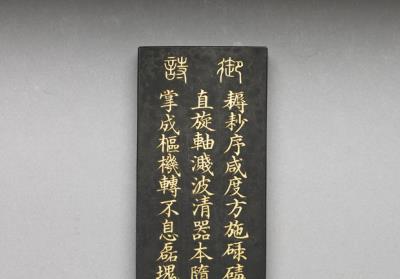 御詩
耨耖序咸度方施碌碡
直旋軸濺波清器本隨
掌成樞機轉不息磊堁